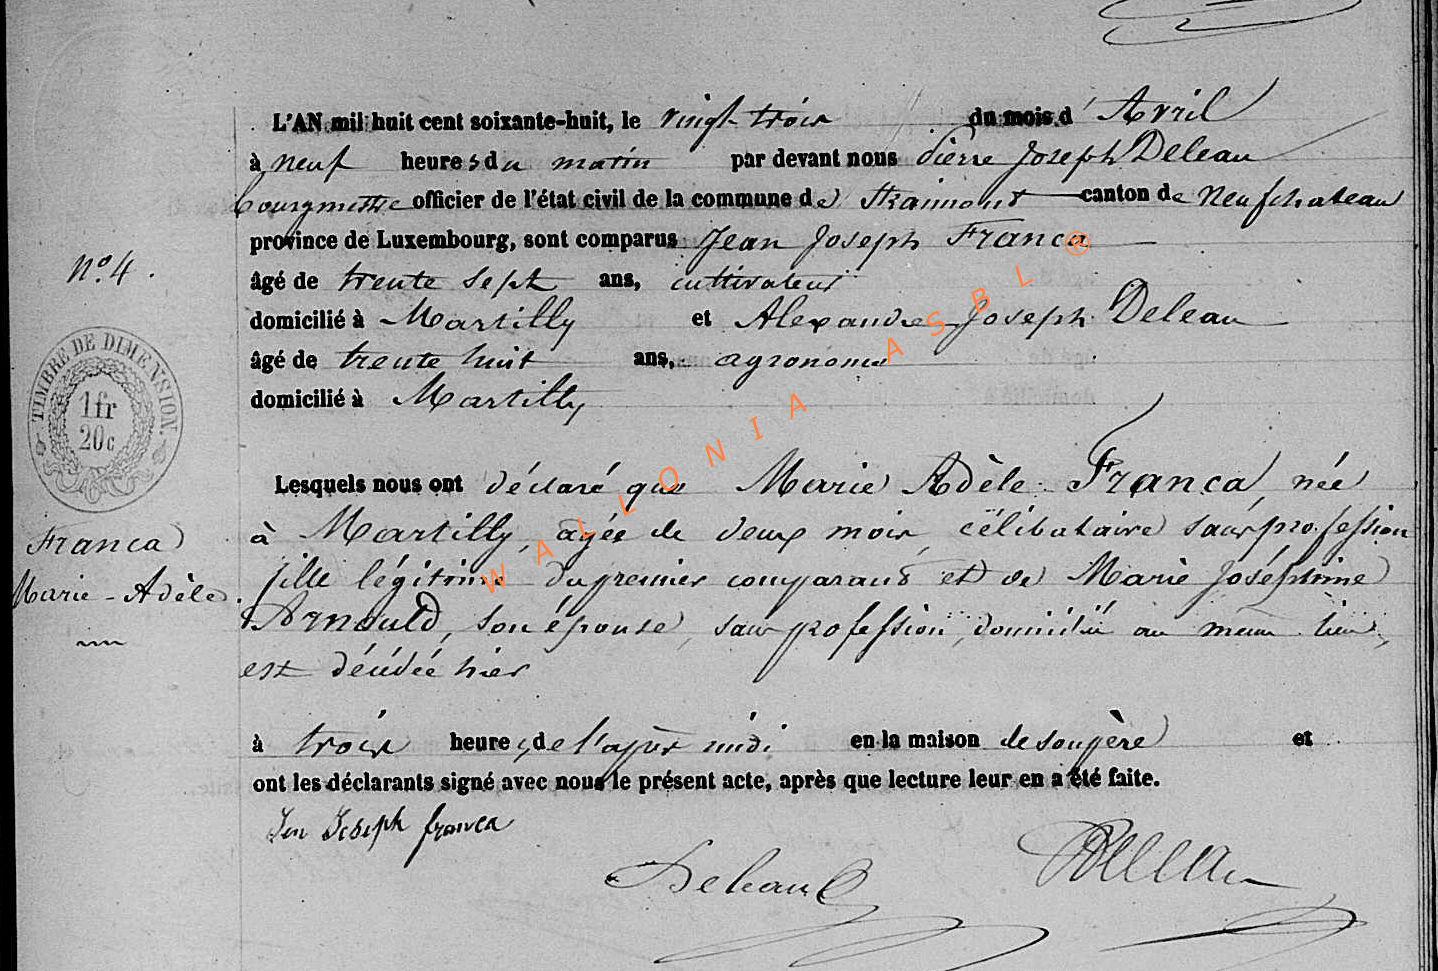 L'AN mil huit cent soixante-huit, le vingt trois du mois d'Avril
à neuf heures du matin par devant nous Pierre Joseph Deleau
bourgmestre officier de l'état civil de la commune de Straimont canton de Neufchateau
province de Luxembourg, sont comparus Jean Joseph Franca
nº 4.
âgé de trente sept ans, cultivateur
domicilié à Martilly et Alexandre Joseph Deleau
âgé de trente huit ans, agronome
domicilié à Martilly
TIMBRE DE DIMENSION.
1fr
20c
Lesquels nous ont déclaré que Marie Adèle Franca, née
à Martilly, âgée de deux mois, célibataire sans profession
Franca
Marie-Adèle
fille légitime du premier comparant et de Marie Joséphine
Arnould, son épouse, sans profession, domiciliée au même lieu,
est décédée hier
à trois heures, de l'après midi en la maison de son père et
ont les déclarants signé avec nous le présent acte, après que lecture leur en a été faite.
Jen Joseph franca
Deleau Deleau
WALLONIA ASBL ®